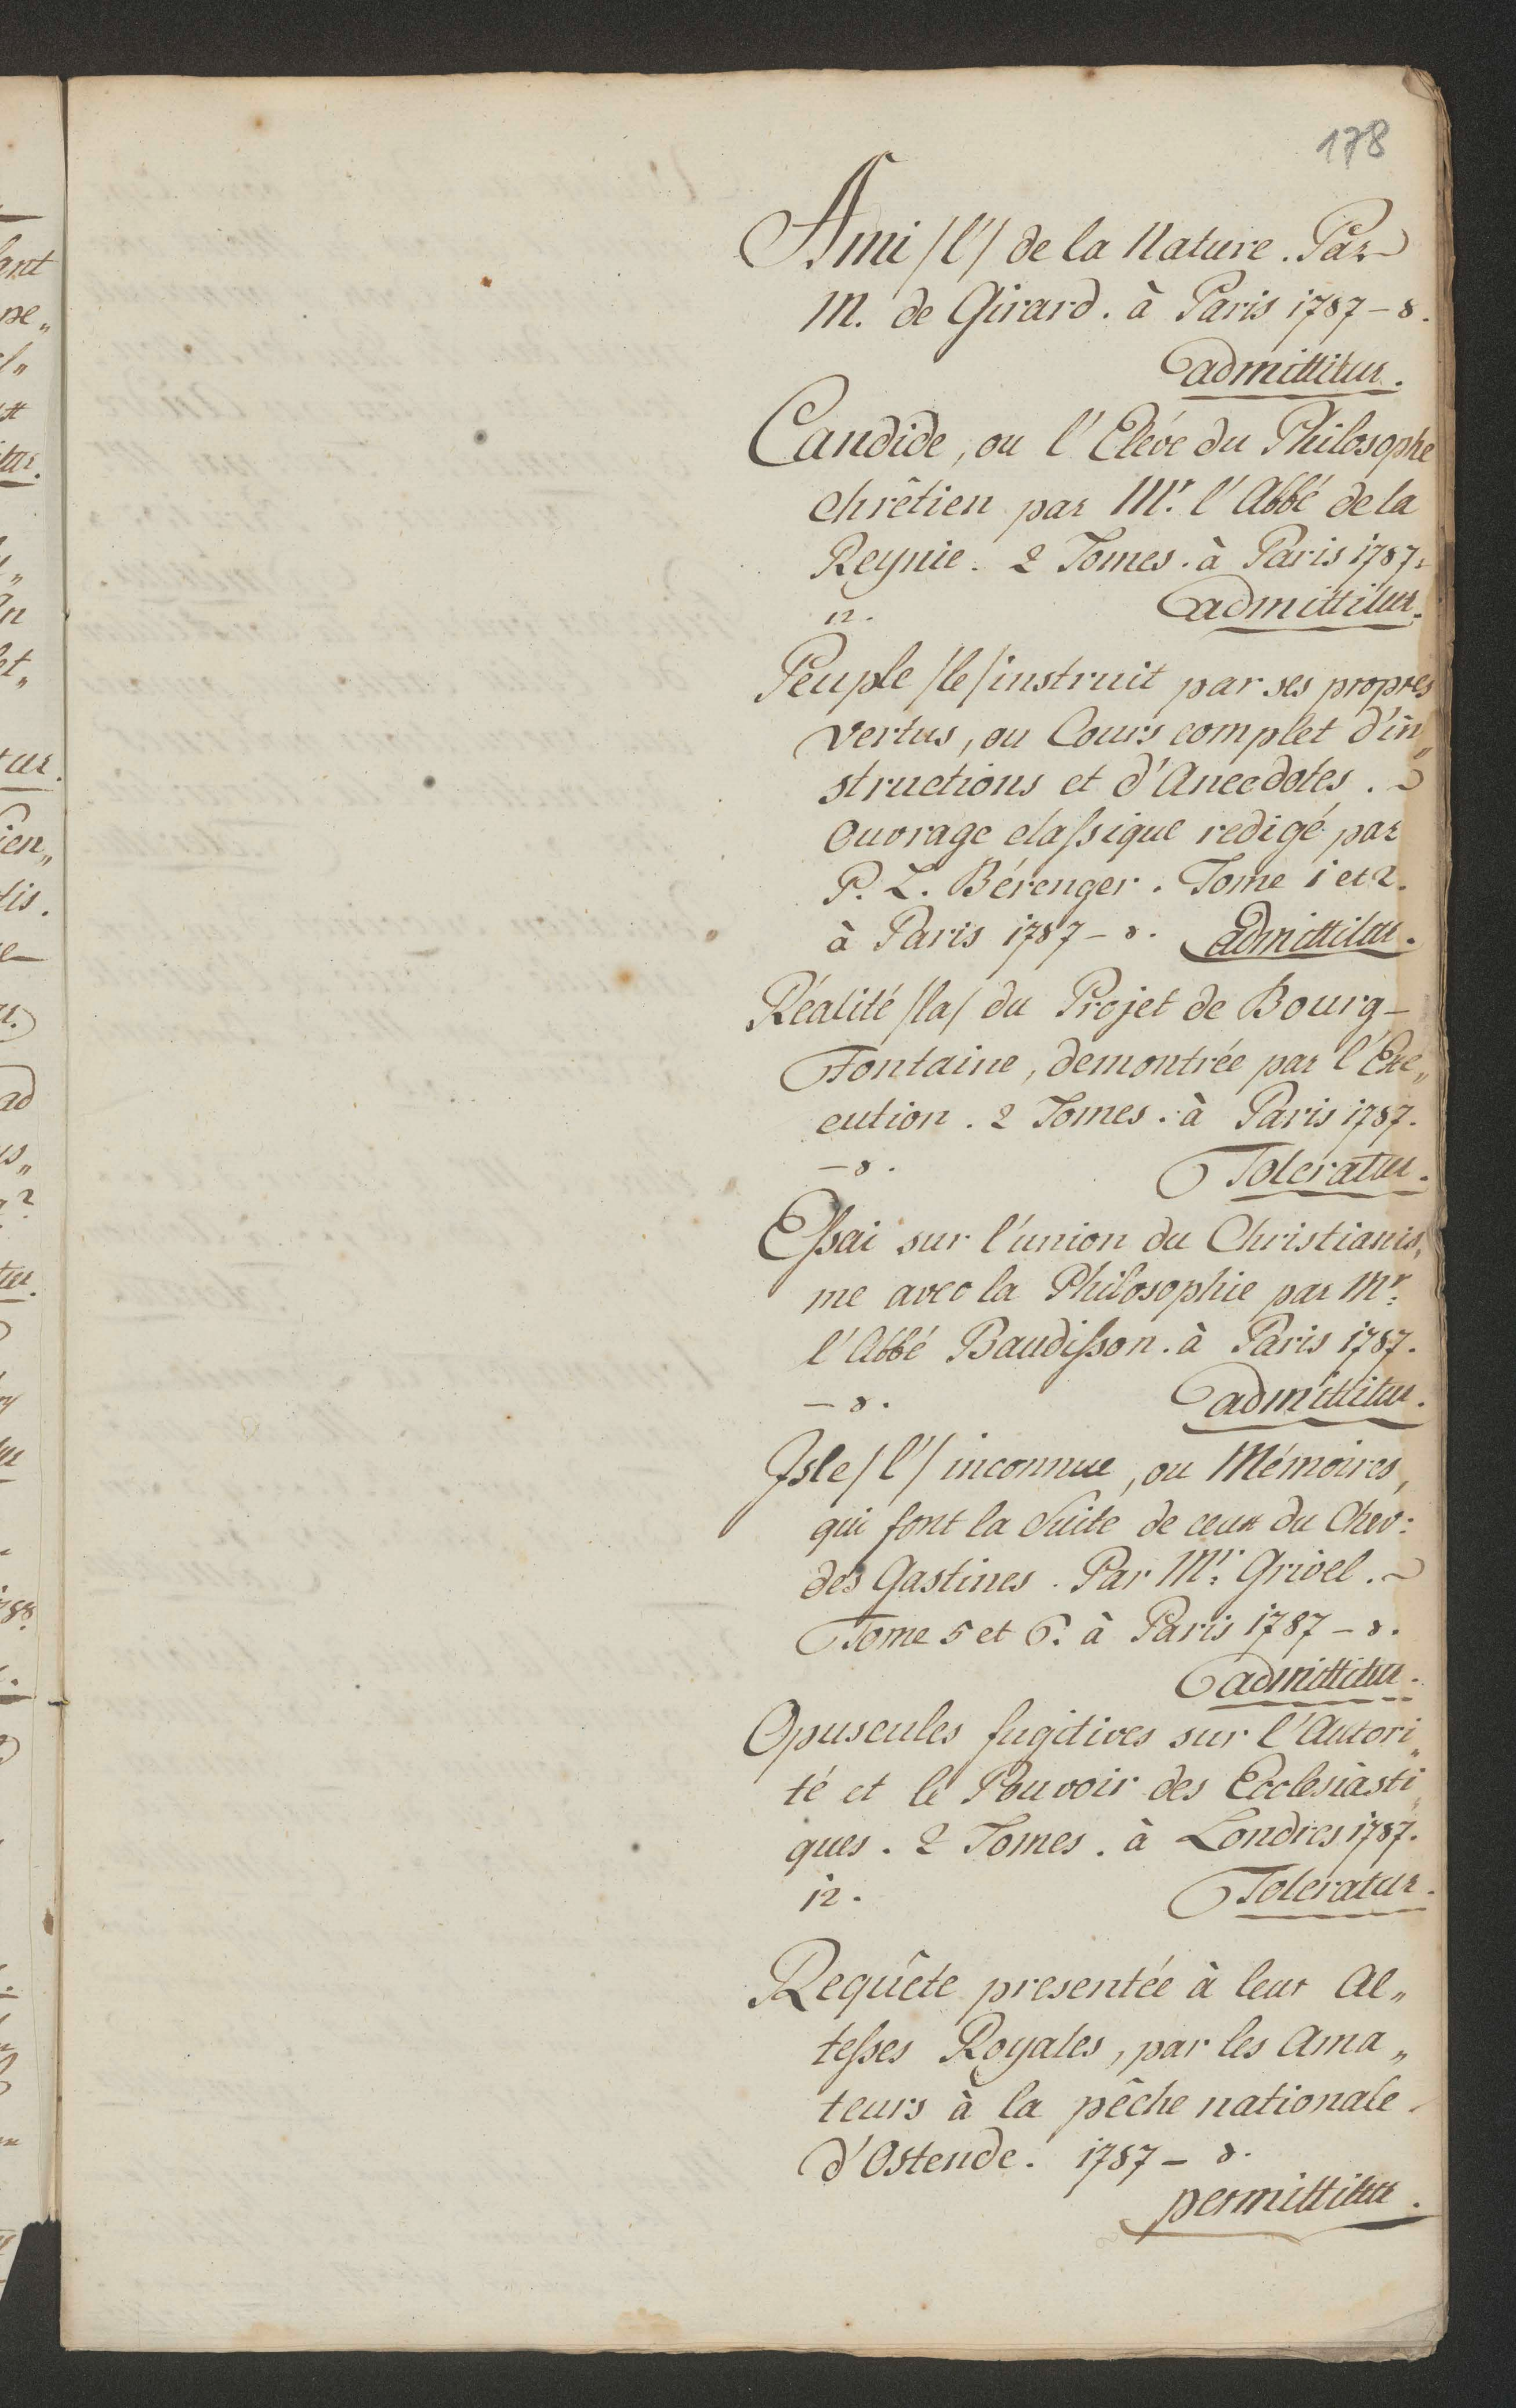 178
Ami /l'/ de la Nature. Par
M. de Girard. à Paris 1787 - 8.
admittitur.
Candide, ou l'Elève du Philosophe
chrêtien par Mr. l'Abbé de la
Reynie. 2 Tomes. à Paris 1787.
12. admittitur.
Peuple /le/ instruit par ses propres
vertus, ou Cours complet d'in„
structions et d'Anecdotes.
Ouvrage classique redigé par
P. L. Bérenger. Tome 1 et 2.
à Paris 1787 - 8. admittitur.
Réalité /la/ du Projet de Bourg-
Fontaine, demontrée par l'Exe„
cution. 2 Tomes. à Paris 1787.
- 8. Toleratur.
Essai sur l'union du Christianis„
me avec la Philosophie par Mr.
l'Abbé Baudisson. à Paris 1787.
- 8. admittitur.
Isle /l'/ inconnue, ou Mémoires,
qui font la Suite de ceux du Chev:
des Gastines. Par Mr. Grivel.
Tome 5 et 6. à Paris 1787 - 8.
admittitur.
Opuscules fugitives sur l'Autori„
té et le Pouvoir des Ecclesiasti„
ques. 2 Tomes. à Londres 1787.
12. Toleratur.
Requête presentée à leur Al„
tesses Royales, par les Ama„
teurs à la pêche nationale
d'Ostende. 1787 - 8.
permittitur.